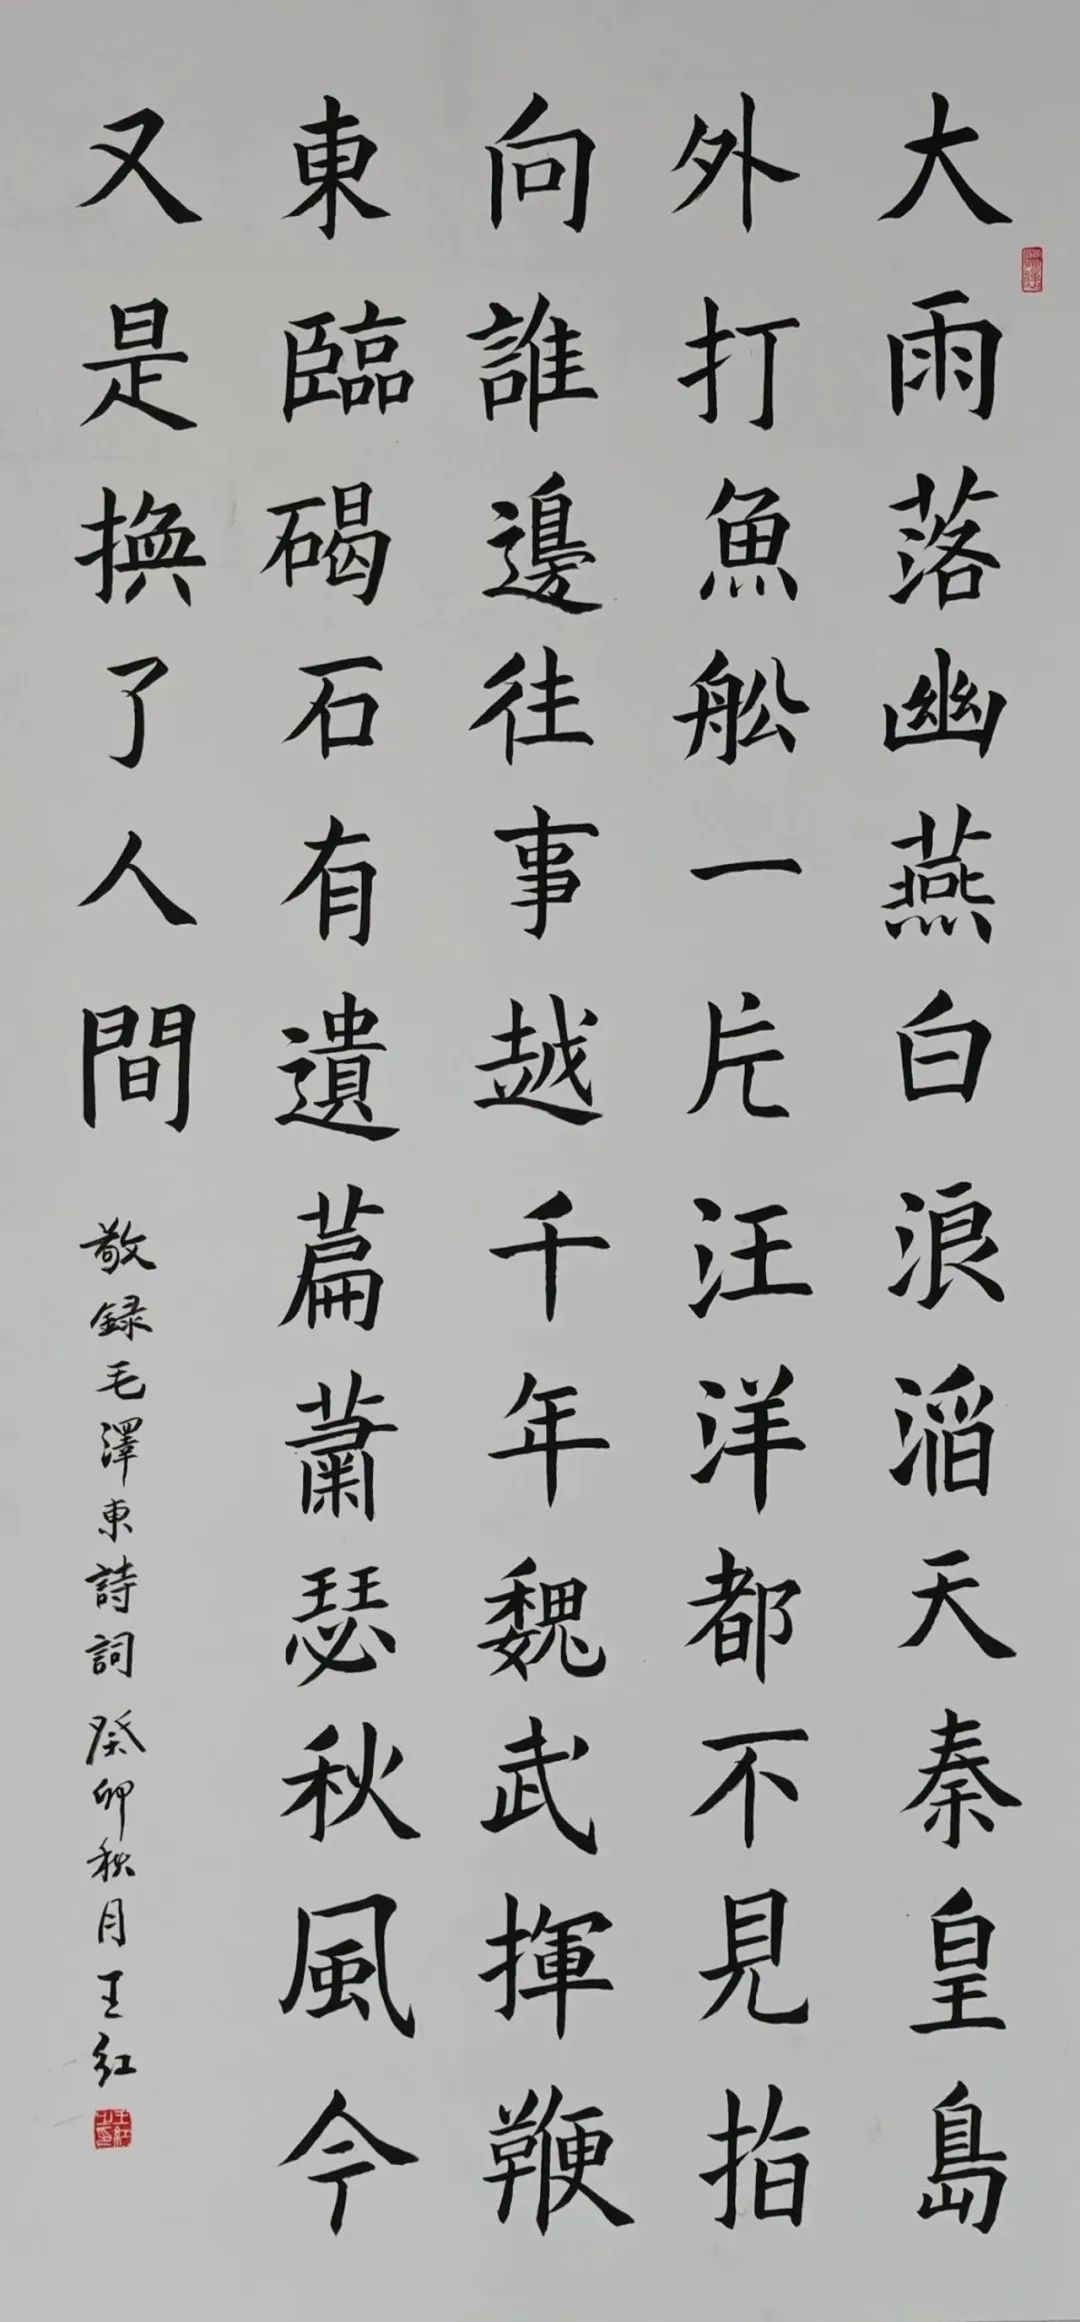 大雨落幽燕白浪滔天秦皇島
外打魚舩一片汪洋都不見指
向誰邊往事越千年魏武揮鞭
東臨碣石有遺萹蕭瑟秋風今
又是換了人間
敬録毛澤東詩詞癸卯秋月王紅
王紅之印